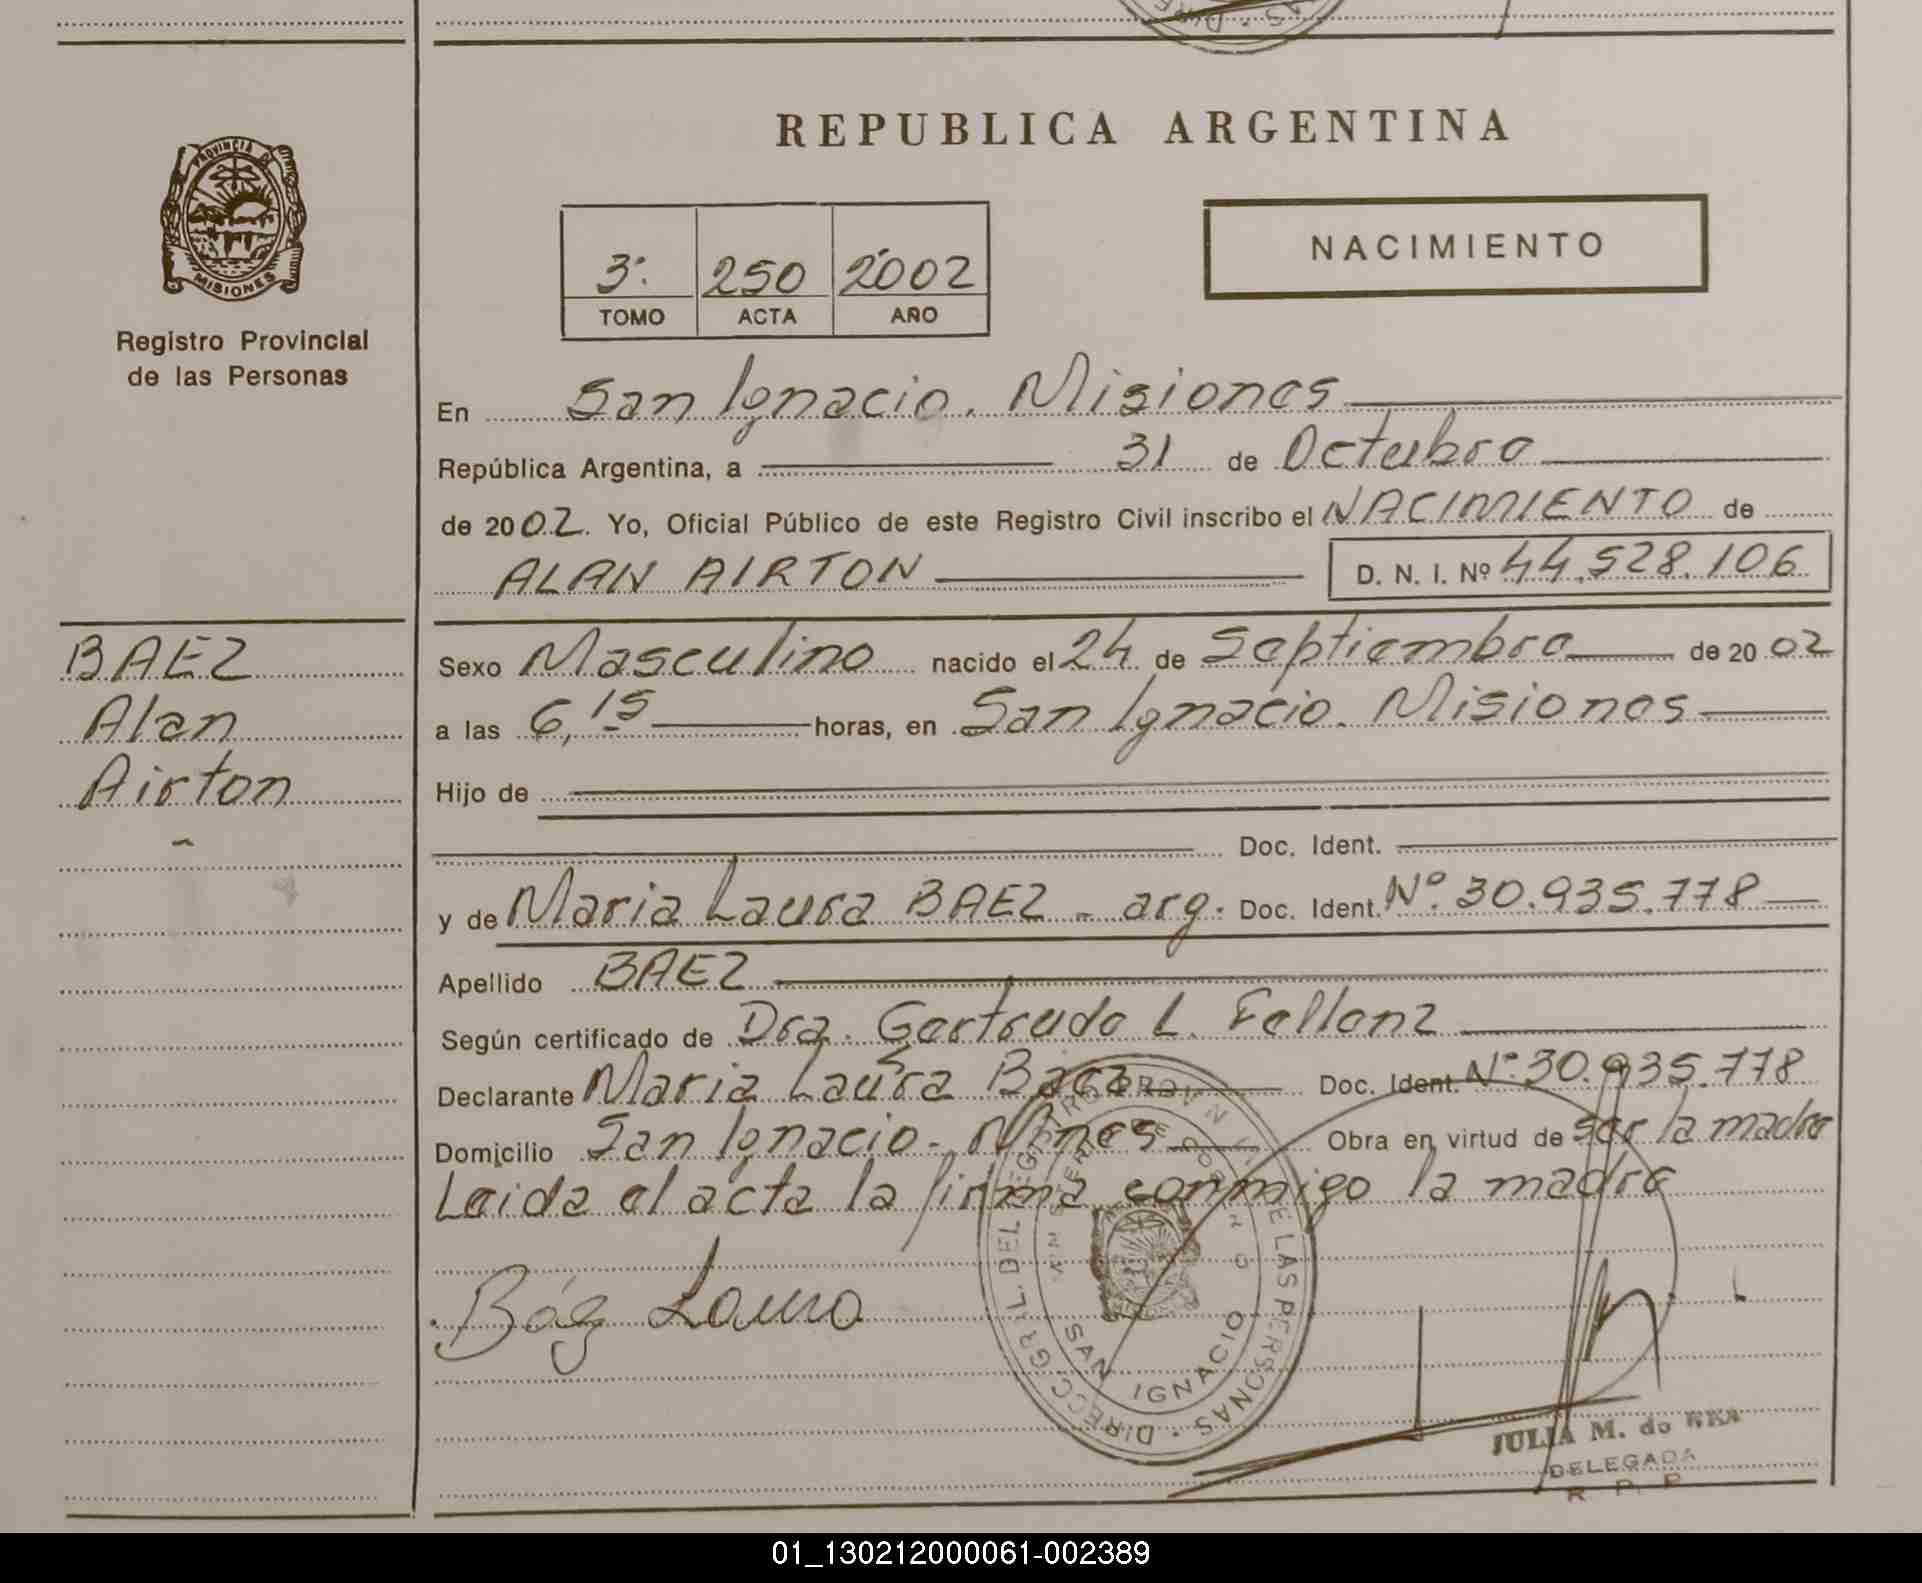 REPUBLICA ARGENTINA
PROVINCIA DE
MISIONES
Registro Provincial
de las Personas
3º. 250 2002
TOMO ACTA AÑO
NACIMIENTO
En San Ignacio. Misiones
República Argentina, a 31 de Octubre
de 2002. Yo, Oficial Público de este Registro Civil inscribo el NACIMIENTO de
ALAN AIRTON D. N. I. Nº 44.528.106
BAEZ
Alan
Airton
Sexo Masculino nacido el 24 de Septiembre de 2002
a las 6,15 horas, en San Ignacio. Misiones
Hijo de
Doc. Ident.
y de Maria Laura BAEZ - arg. Doc. Ident. Nº. 30.935.778
Apellido BAEZ
Según certificado de Dra. Gertrude L. Fellenz
Declarante Maria Laura Baez Doc. Ident. Nº 30.935.778
Domicilio San Ignacio - Mnes Obra en virtud de ser la madre
Leida el acta la firma conmigo la madre
Báez Laura
DIRECC. GRL. DEL REGISTRO PROV. DE LAS PERSONAS
MINISTERIO DE GOBIERNO
SAN IGNACIO
JULIA M. de
DELEGADA
R. P. P.
01_130212000061-002389